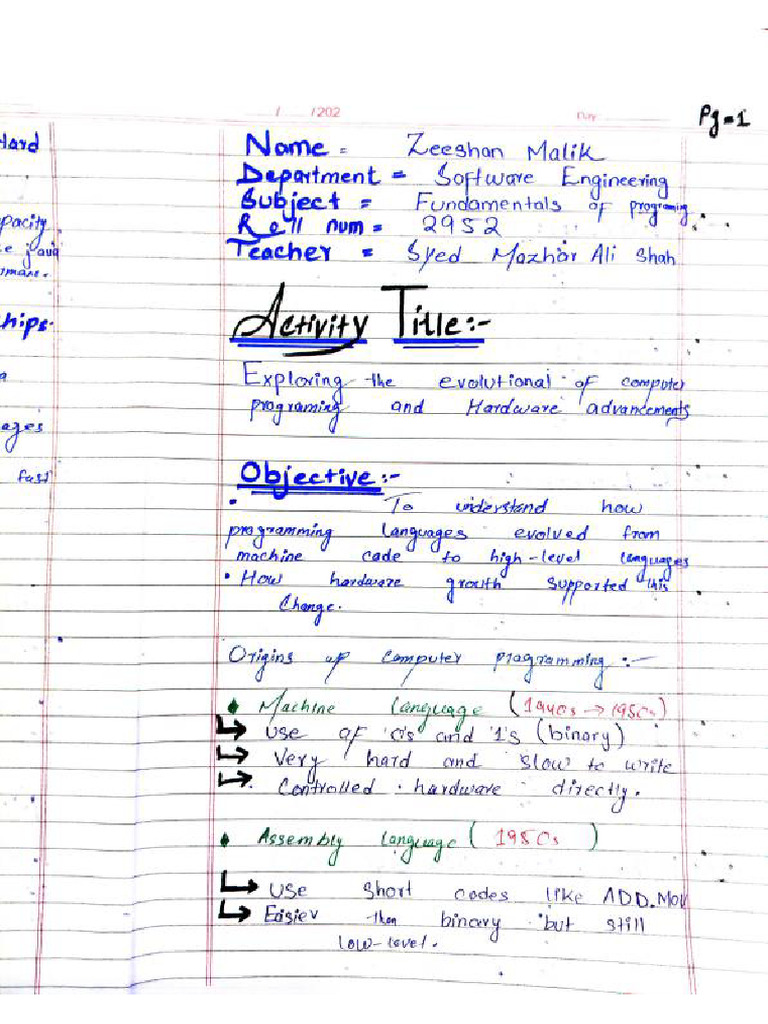 / /202
Pg=1
Name = Zeeshan Malik
Department = Software Engineering
Subject = Fundamentals of programing.
Roll num = 2952
Teacher = Syed Mazhar Ali Shah
Activity Title:-
Exploring the evolutional of computer
programing and Hardware advancements
Objective:-
• To understand how
programming languages evolved from
machine code to high-level languages
• How hardware growth supported this
Change.
Origins of computer programming:-
♦ Machine language (1940s → 1950s)
↳ use of '0's and '1's (binary)
↳ Very hard and slow to write
↳ Controlled hardware directly.
♦ Assembly language (1950s)
↳ Use short codes like ADD.MOV
↳ Easier then binary but still
low-level.
Hard
pacity
chips.
ages
fast